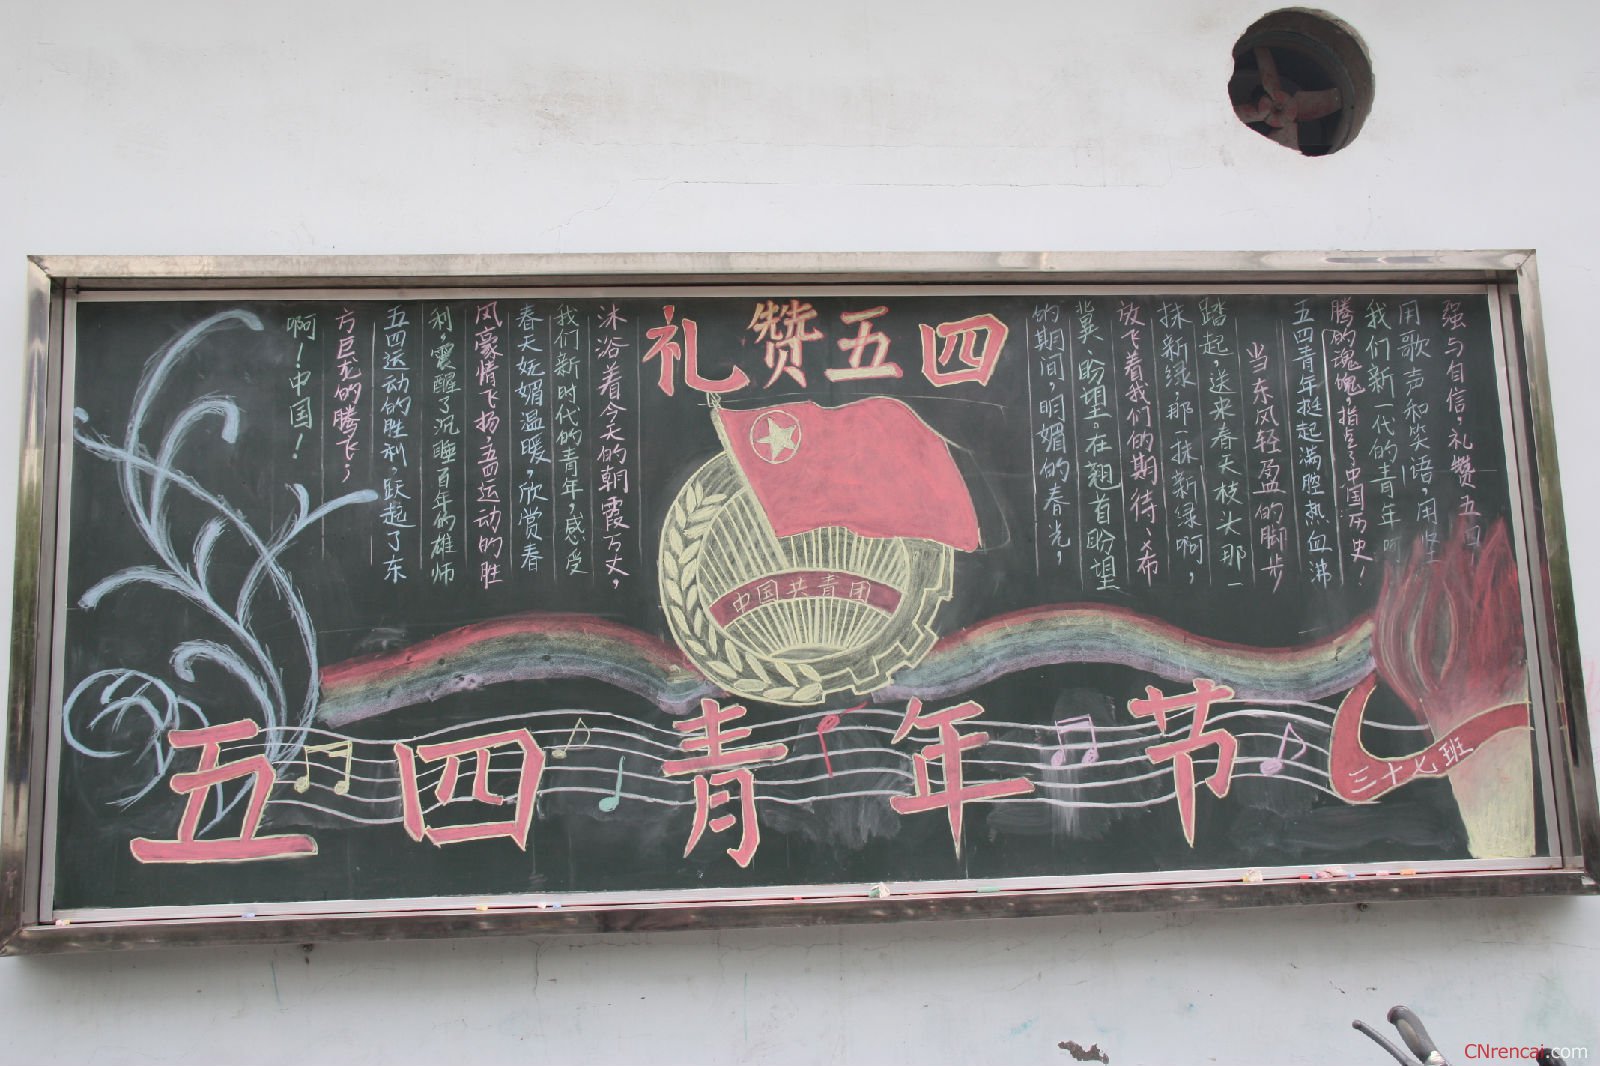 礼赞五四
当东风轻盈的脚步
踏起，送来春天枝头那一
抹新绿，那一抹新绿啊，
放飞着我们的期待、希
冀、盼望。在翘首盼望
的期间，明媚的春光，
沐浴着今天的朝霞万丈，
我们新时代的青年，感受
春天妩媚温暖，欣赏春
风豪情飞扬，五四运动的胜
利，震醒了沉睡百年的雄师
五四运动的胜利，跃起了东
方巨龙的腾飞；
啊！中国！
五四青年挺起满腔热血沸
腾的魂魄，指点了中国历史！
我们新一代的青年啊
用歌声和笑语，用坚
强与自信，礼赞五四
中国共青团
五四青年节
三十七班
CNrencai.com